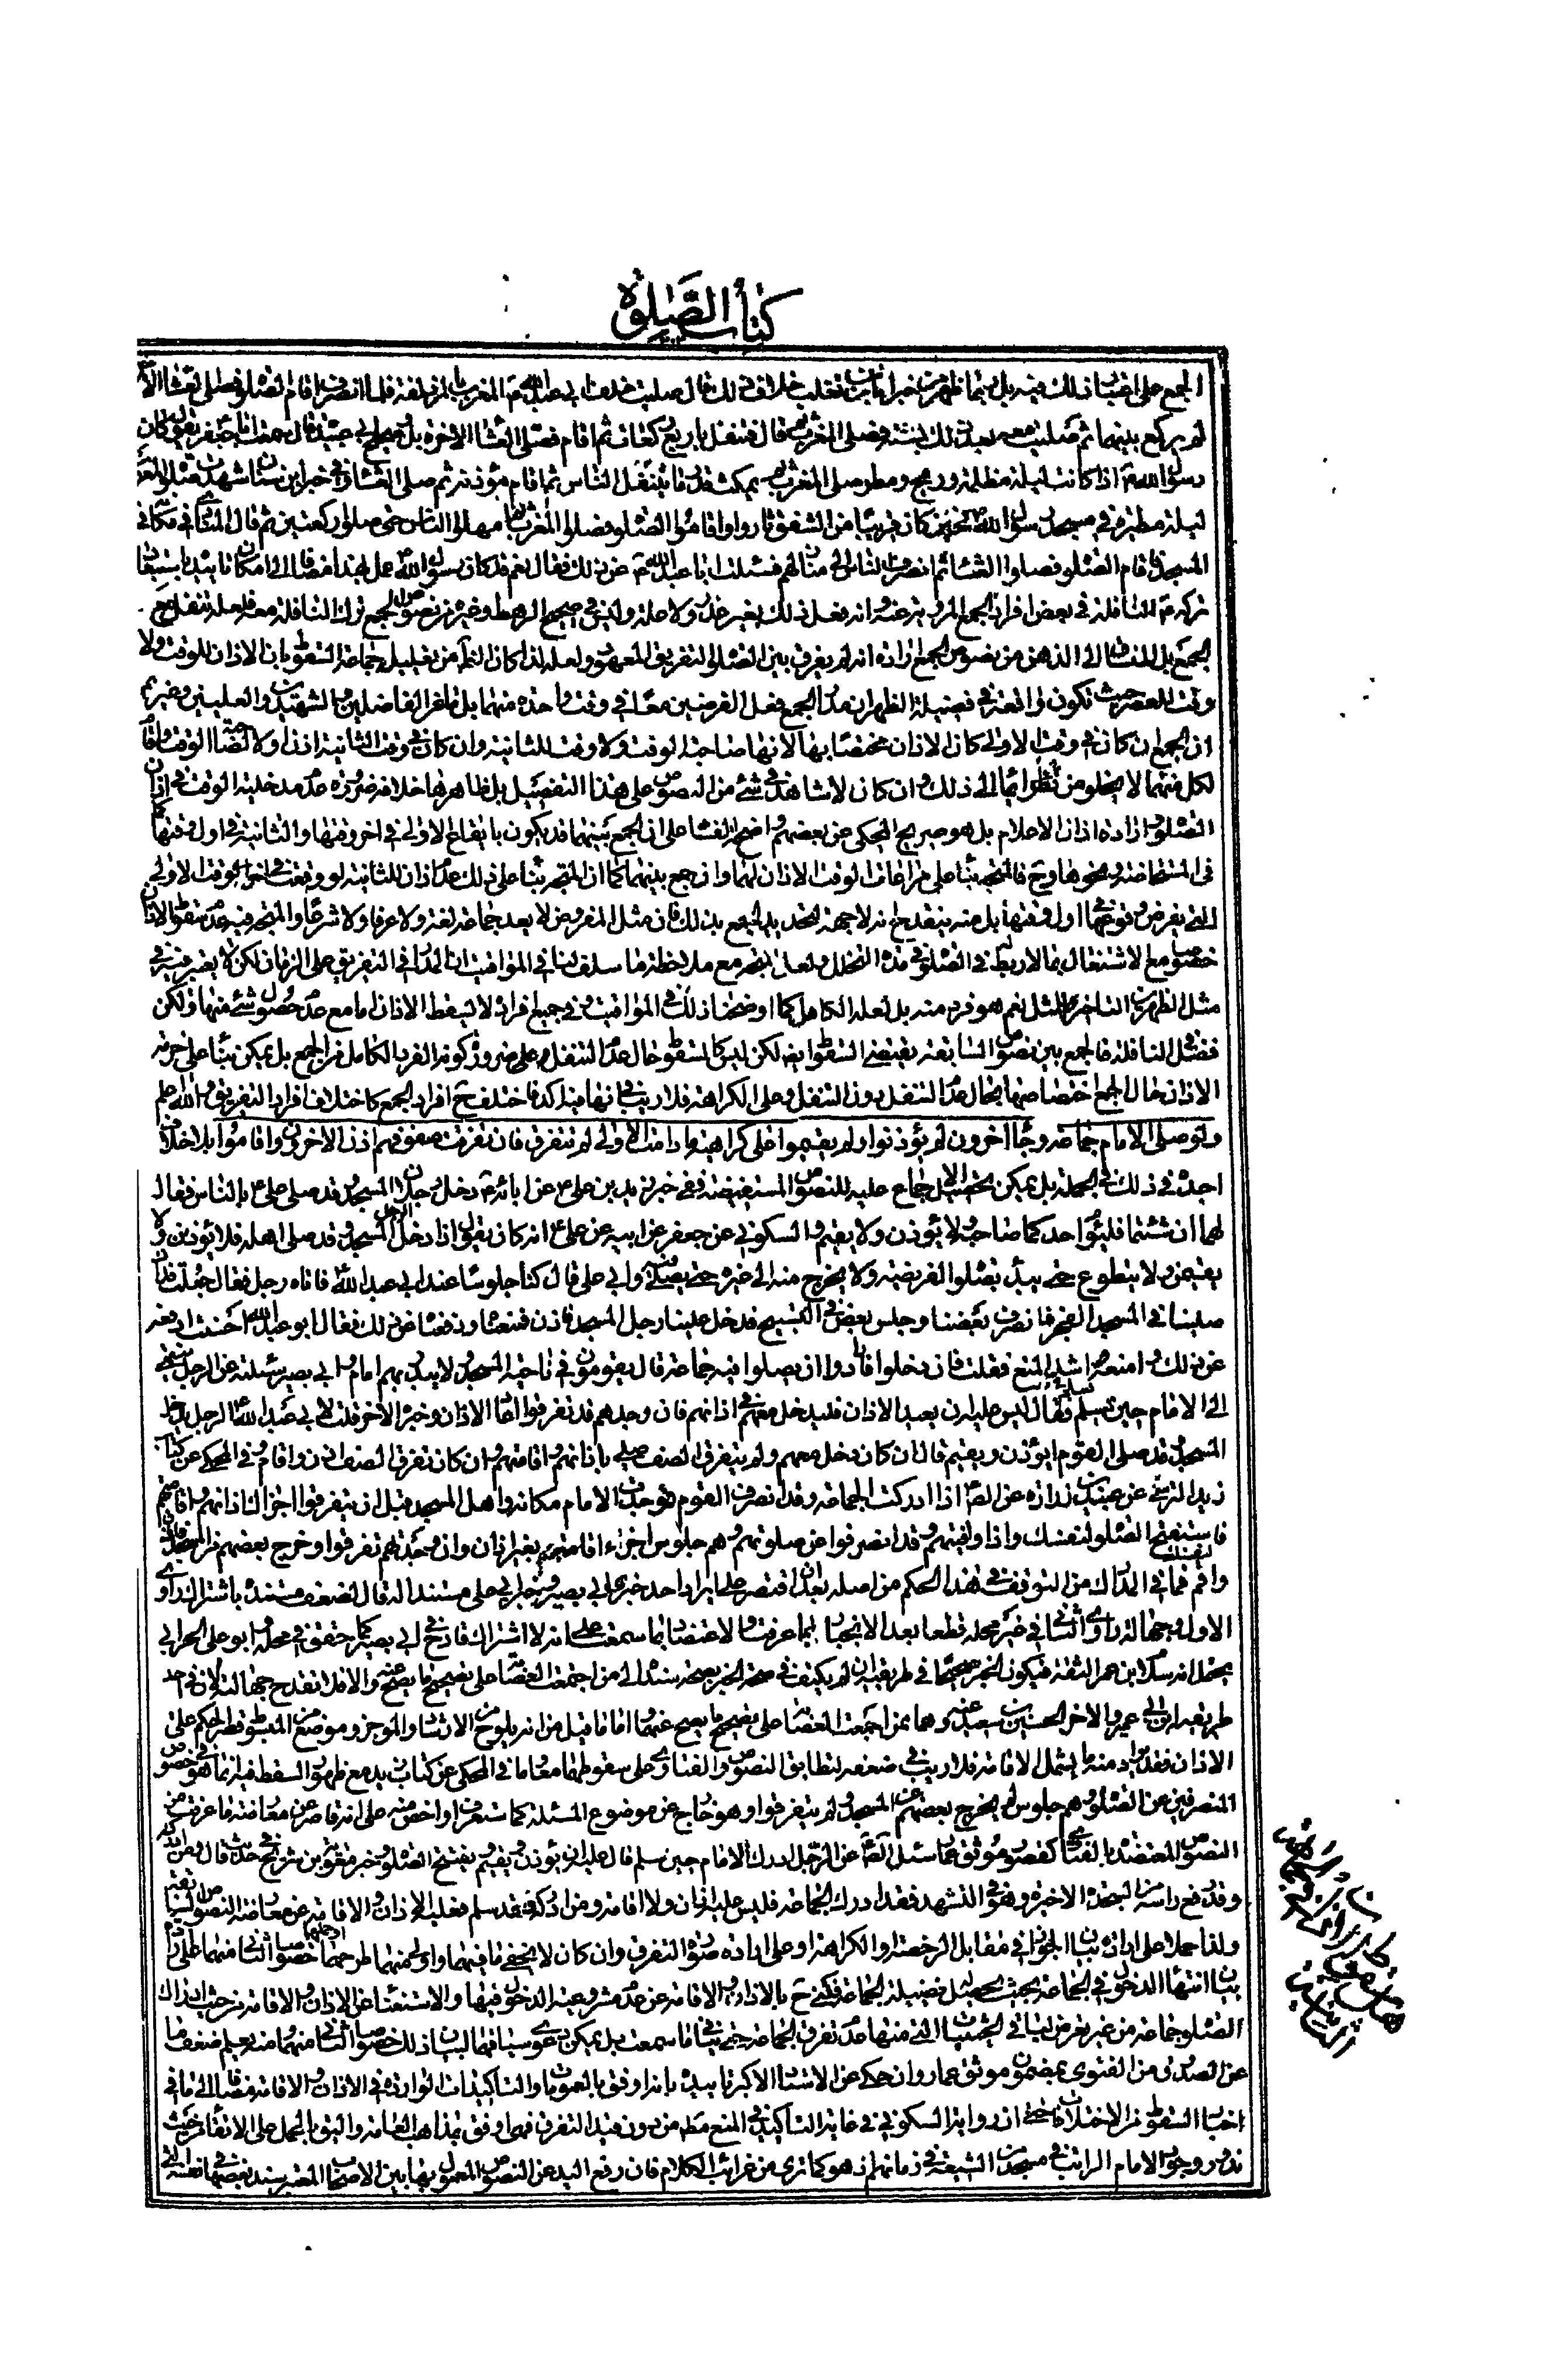 كتاب الصلوة
الجمع على اذان لك فيه بل بينهما ظهر من خبر ابان بن تغلب خلاف ذلك قال صليت خلف ابى عبد الله ع المغرب بالمزدلفة فلما انصرف اقام الصلوة فصلى العشاء الاخرة
لم يركع بينهما ثم صليت معه بعد ذلك بسنة فصلى المغرب ثم قام فتنفل باربع ركعات ثم اقام فصلى العشاء الاخرة بل قال سمعت ابا جعفر يقول كان
رسول الله ص اذا كانت ليلة مظلمة وريح ومطر صلى المغرب ثم مكث قدر ما يتنفل الناس ثم اقام مؤذنه ثم صلى العشاء وفى خبر ابن سنان شهدت صلوة المغرب
ليلة مطيرة فى مسجد رسول الله ص فحين كان قريبا من الشفق ثاروا واقاموا الصلوة فصلوا المغرب ثم امهلوا الناس حتى صلوا ركعتين ثم قام المنادى فى مكانه فى
المسجد فاقام الصلوة فصلوا العشاء ثم انصرف الناس الى منازلهم فسئلت ابا عبد الله ع عن ذلك فقال نعم قد كان رسول الله ص عمل بهذا مضافا الى امكان تاييد باستبعاد
تركه ص النافلة فى بعض افراد الجمع المروية عنه انه فعل ذلك بغير خوف ولا علة وليس فى صحيح الرهط وغيره من نصوص الجمع ترك النافلة معه فلعله تنفل مع
الجمع بل المنساق الى الذهن من نصوص الجمع ارادة انه لم يفرق بين الصلوة التفريق المعهود ولعله لذا كان التأمل من تعليل جماعة السقوط بان الاذان للوقت ولا
وقت للعصر حيث تكون واقعة فى فضيلة الظهر ان هذا الجمع فعل الفرضين معا فى وقت واحدة منهما بل ما عن الفاضلين والشهيدين والعليين وغيرهم
ان الجمع ان كان فى وقت الاولى كان الاذان مختصا بها لانها صاحبة الوقت ولا وقت للثانية وان كان فى وقت الثانية اذن اولا لصاحبة الوقت واقام
لكل منهما لا يخلو من نظر ايماء الى ذلك وان كان لا شاهد فى شئ من النصوص على هذا التفصيل بل ظاهرها خلافه ضرورة عدم مدخلية الوقت فى اذان
الصلوة ارادة اذان الاعلام بل هو صريح المحكى عن بعضهم واضح الفساد على ان الجمع بينهما قد يكون بايقاع الاولى فى اخر وقتها والثانية فى اول وقتها كما
فى المستحاضة ونحوها وح فالمتجه بناء على مراعاة الوقت الاذان لهما وان جمع بينهما كما ان المتجه بناء على ذلك عدم اذان للثانية لو وقعت فى اخر الوقت الاولى
التى يفرض وقوعها اول وقتها بل منه ينقدح انه لا جهة لتحديد الجمع بذلك فان مثل المفروض لا يعد جماعة لغة ولا عرفا ولا شرعا والمتجه فيه عدم سقوط الاذان
خصوصا مع الاشتغال بما لا ربط له فى الصلوة فى هذه التخلل ولعل المتجه مع ملاحظة ما سلف لنا فى المواقيت ان المدار فى التفريق على الزمان لكن لا يعتبر فيه
مثل الظهرين التاخير للمثل نعم هو فرد منه بل لعله الكامل كما اوضحنا ذلك فى المواقيت وفى جميع افراده لا يسقط الاذان اما مع عدم حصول شئ منها ولكن
فصل النافلة فالجمع بين نصوص السابقة يقتضى السقوط ايضا لكن ليس كالسقوط حال عدم التنفل وعلى ضرورة كونه الفرد الكامل من الجمع بل يمكن بناء على حرمة
الاذان حال الجمع اختصاصها بحال عدم التنفل دون التنفل وعلى الكراهة فلا ريب فى انها فيه اكد فاختلف ح افراد الجمع كاختلاف افراد التفريق والله اعلم
ولو صلى الامام جماعة وجاء اخرون لم يؤذنوا ولم يقيموا على كراهية ما دامت الاولى لم تتفرق فان تفرقت صفوفهم اذن الاخرون واقاموا بلا خلاف
اجده فى ذلك فى الجملة بل يمكن تحصيل الاجماع عليه للنصوص المستفيضة ففى خبر زيد بن على ع عن ابائه ع دخل رجلان المسجد وقد صلى على ع بالناس فقال
لهما ان شئتما فليؤم احدكما صاحبه ولا يؤذن ولا يقيم والسكونى عن جعفر عن ابيه عن على ع انه كان يقول اذا دخل الرجل المسجد وقد صلى اهله فلا يؤذنن ولا
يقيمن ولا يتطوع حتى يبدأ بصلوة الفريضة ولا يخرج منه الى غيره حتى يصلى فيه وابى على قال كنا جلوسا عند ابى عبد الله ع فاتاه رجل فقال جعلت فداك
صلينا فى المسجد الفجر فانصرف بعضنا وجلس بعض فى التسبيح فدخل علينا رجل المسجد فاذن فمنعناه ودفعناه عن ذلك فقال ابو عبد الله ع احسنت ادفعه
عن ذلك وامنعه اشد المنع فقلت فان دخلوا فارادوا ان يصلوا فيه جماعة قال يقومون فى ناحية المسجد ولا يبدر بهم امام وابى بصير سئلته عن الرجل ينتهى
الى الامام حين يسلم فقال ليس عليه ان يعيد الاذان فليدخل معهم فى اذانهم فان وجدهم قد تفرقوا اعاد الاذان وخبره الاخر قلت لابى عبد الله ع الرجل يدخل
المسجد وقد صلى القوم ايؤذن ويقيم قال ان كان دخل معهم ولم يتفرق الصف صلى باذانهم واقامتهم وان كان تفرق الصف اذن واقام وفى المحكى عن كتاب
زيد النرسى عن عبيد بن زرارة عن الصادق ع اذا ادركت الجماعة وقد انصرف القوم ووجدت الامام مكانه واهل المسجد قبل ان يتفرقوا اجزأك اذانهم واقامتهم
فاستفتح الصلوة لنفسك واذا وافيتهم وقد انصرفوا عن صلوتهم وهم جلوس اجزء اقامة بغير اذان وان وجدتهم تفرقوا وخرج بعضهم من المسجد فاذن
واقم فما فى المدارك من التوقف فى هذا الحكم من اصله بعد ان اقتصر على ايراد احد خبرى ابى بصير وخبر ابى على مستندا له قال لضعف مستنده باشتراك راوى
الاول وجهالة راوى الثانى فى غير محله قطعا بعد الانجبار بما عرفت والاعتضاد بما سمعت على انه لا اشتراك قادح فى ابى بصير كما حقق فى محله وابو على الحرانى
يحتمل انه سلام بن عمر الثقة فيكون الخبر صحيحا فى طريقه ان لم يكتف فى صحة الخبر بصحة سنده الى من اجمعت العصابة على تصحيح ما يصح عنه والا فلا تقدح جهالته لان فى احد
طريقيه ابن ابى عمير والاخر الحسين بن سعيد وهما ممن اجمعت العصابة على تصحيح ما يصح عنهما اما ما قيل من انه يلوح من الارشاد والموجز وموضع من المبسوط قصر الحكم على
الاذان فقد يراد منه ما يشمل الاقامة فلا ريب فى ضعفه لتطابق النصوص والفتاوى على سقوطهما معا ما فى المحكى عن كتاب زيد مع ظهور السقط فيه انما هو فى خصوص
المنصرفين عن الصلوة وهم جلوس لم يخرج بعضهم عن المسجد ولم يتفرقوا وهو خارج عن موضوع المسئلة كما ستعرف او اخص منه على انه قاصر عن معارضة ما عرفت من
النصوص المعتضدة بالفتاوى كقصور موثق عمار سئل الصادق ع عن الرجل ادرك الامام حين سلم قال عليه ان يؤذن ويقيم ويفتتح الصلوة وخبر معوية بن شريح فى حديث قال ومن ادركه
وقد رفع راسه من السجدة الاخيرة وهو فى التشهد فقد ادرك الجماعة فليس عليه اذان ولا اقامة ومن ادركه وقد سلم فعليه الاذان والاقامة عن معارضة النصوص السابقة
ولذا حملا على ارادة بيان الجواز فى مقابل الرخصة او الكراهة او على ارادة صورة التفرق وان كان لا يخفى ما فيهما واولى منهما طرحهما خصوصا الثانى منهما على ارادة
بيان انتهاء الدخول فى الجماعة بحيث يحصل له فضيلة الجماعة فكنى ح بالاذان والاقامة عن عدم مشروعية الدخول فيها والاستغناء عن الاذان والاقامة من حيث ادراك
الصلوة جماعة من غير تعرض لباقى الحيثيات التى منها عدم تفرق الجماعة حتى ينافى ما سمعت بل يمكن دعوى سياقهما لبيان ذلك خصوصا الثانى منهما ومنه يعلم ضعف ما
عن الصدوق من الفتوى بمضمون موثق عمار وان حكى عن الاستاد الاكبر تاييده بانه اوفق بالعمومات والتاكيدات الواردة فى الاذان والاقامة مضافا الى ما فى
اخبار السقوط من الاختلاف حتى ان رواية السكونى فى غاية التاكيد فى المنع مط من دون قيد التفرق فهى اوفق بمذاهب العامة واليق بالحمل على الاتقاء من حيث
ندور وجود الامام الراتب فى مسجد من الشيعة فى زمانهم اذ هو كما ترى من غرائب الكلام فان رفع اليد عن النصوص المعمول بها بين الاصحاب المعتبر سند بعضها فى نفسه الى